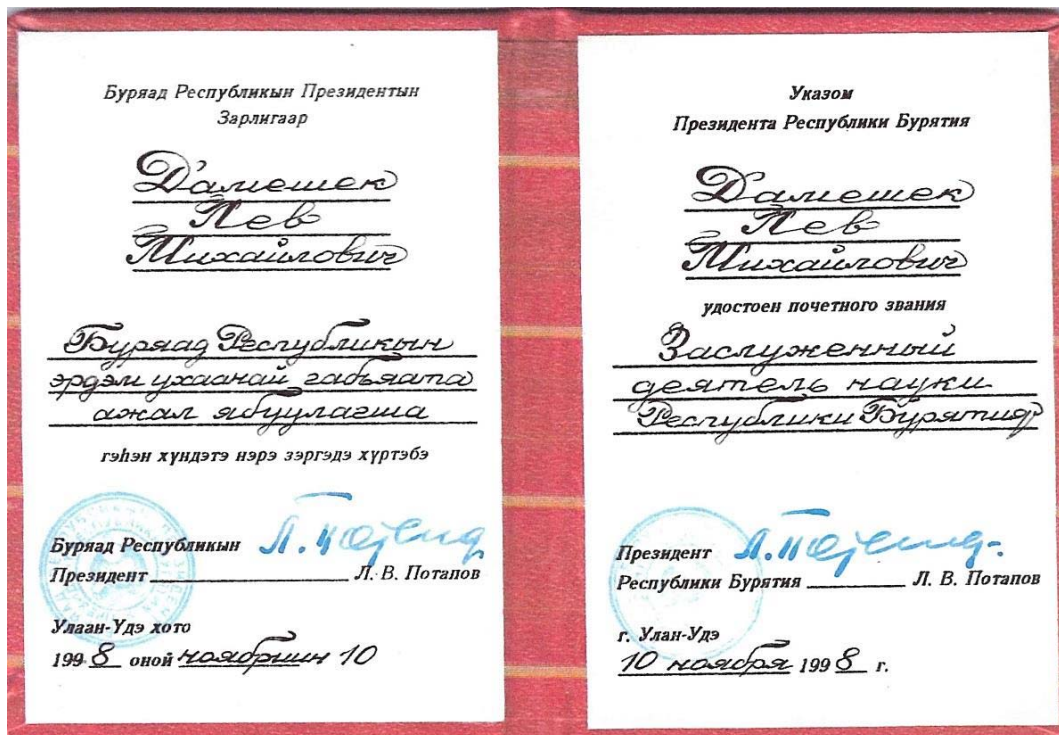 Буряад Республикын Президентын
Зарлигаар
Дамешек
Лев
Михайлович
Буряад Республикын
эрдэм ухаанай габьяата
ажал ябуулагша
гэһэн хүндэтэ нэрэ зэргэдэ хүртэбэ
Буряад Республикын
Президент Л. В. Потапов
Улаан-Үдэ хото
1998 оной ноябриин 10
Указом
Президента Республики Бурятия
Дамешек
Лев
Михайлович
удостоен почетного звания
Заслуженный
деятель науки
Республики Бурятия
Президент
Республики Бурятия Л. В. Потапов
г. Улан-Удэ
10 ноября 1998 г.